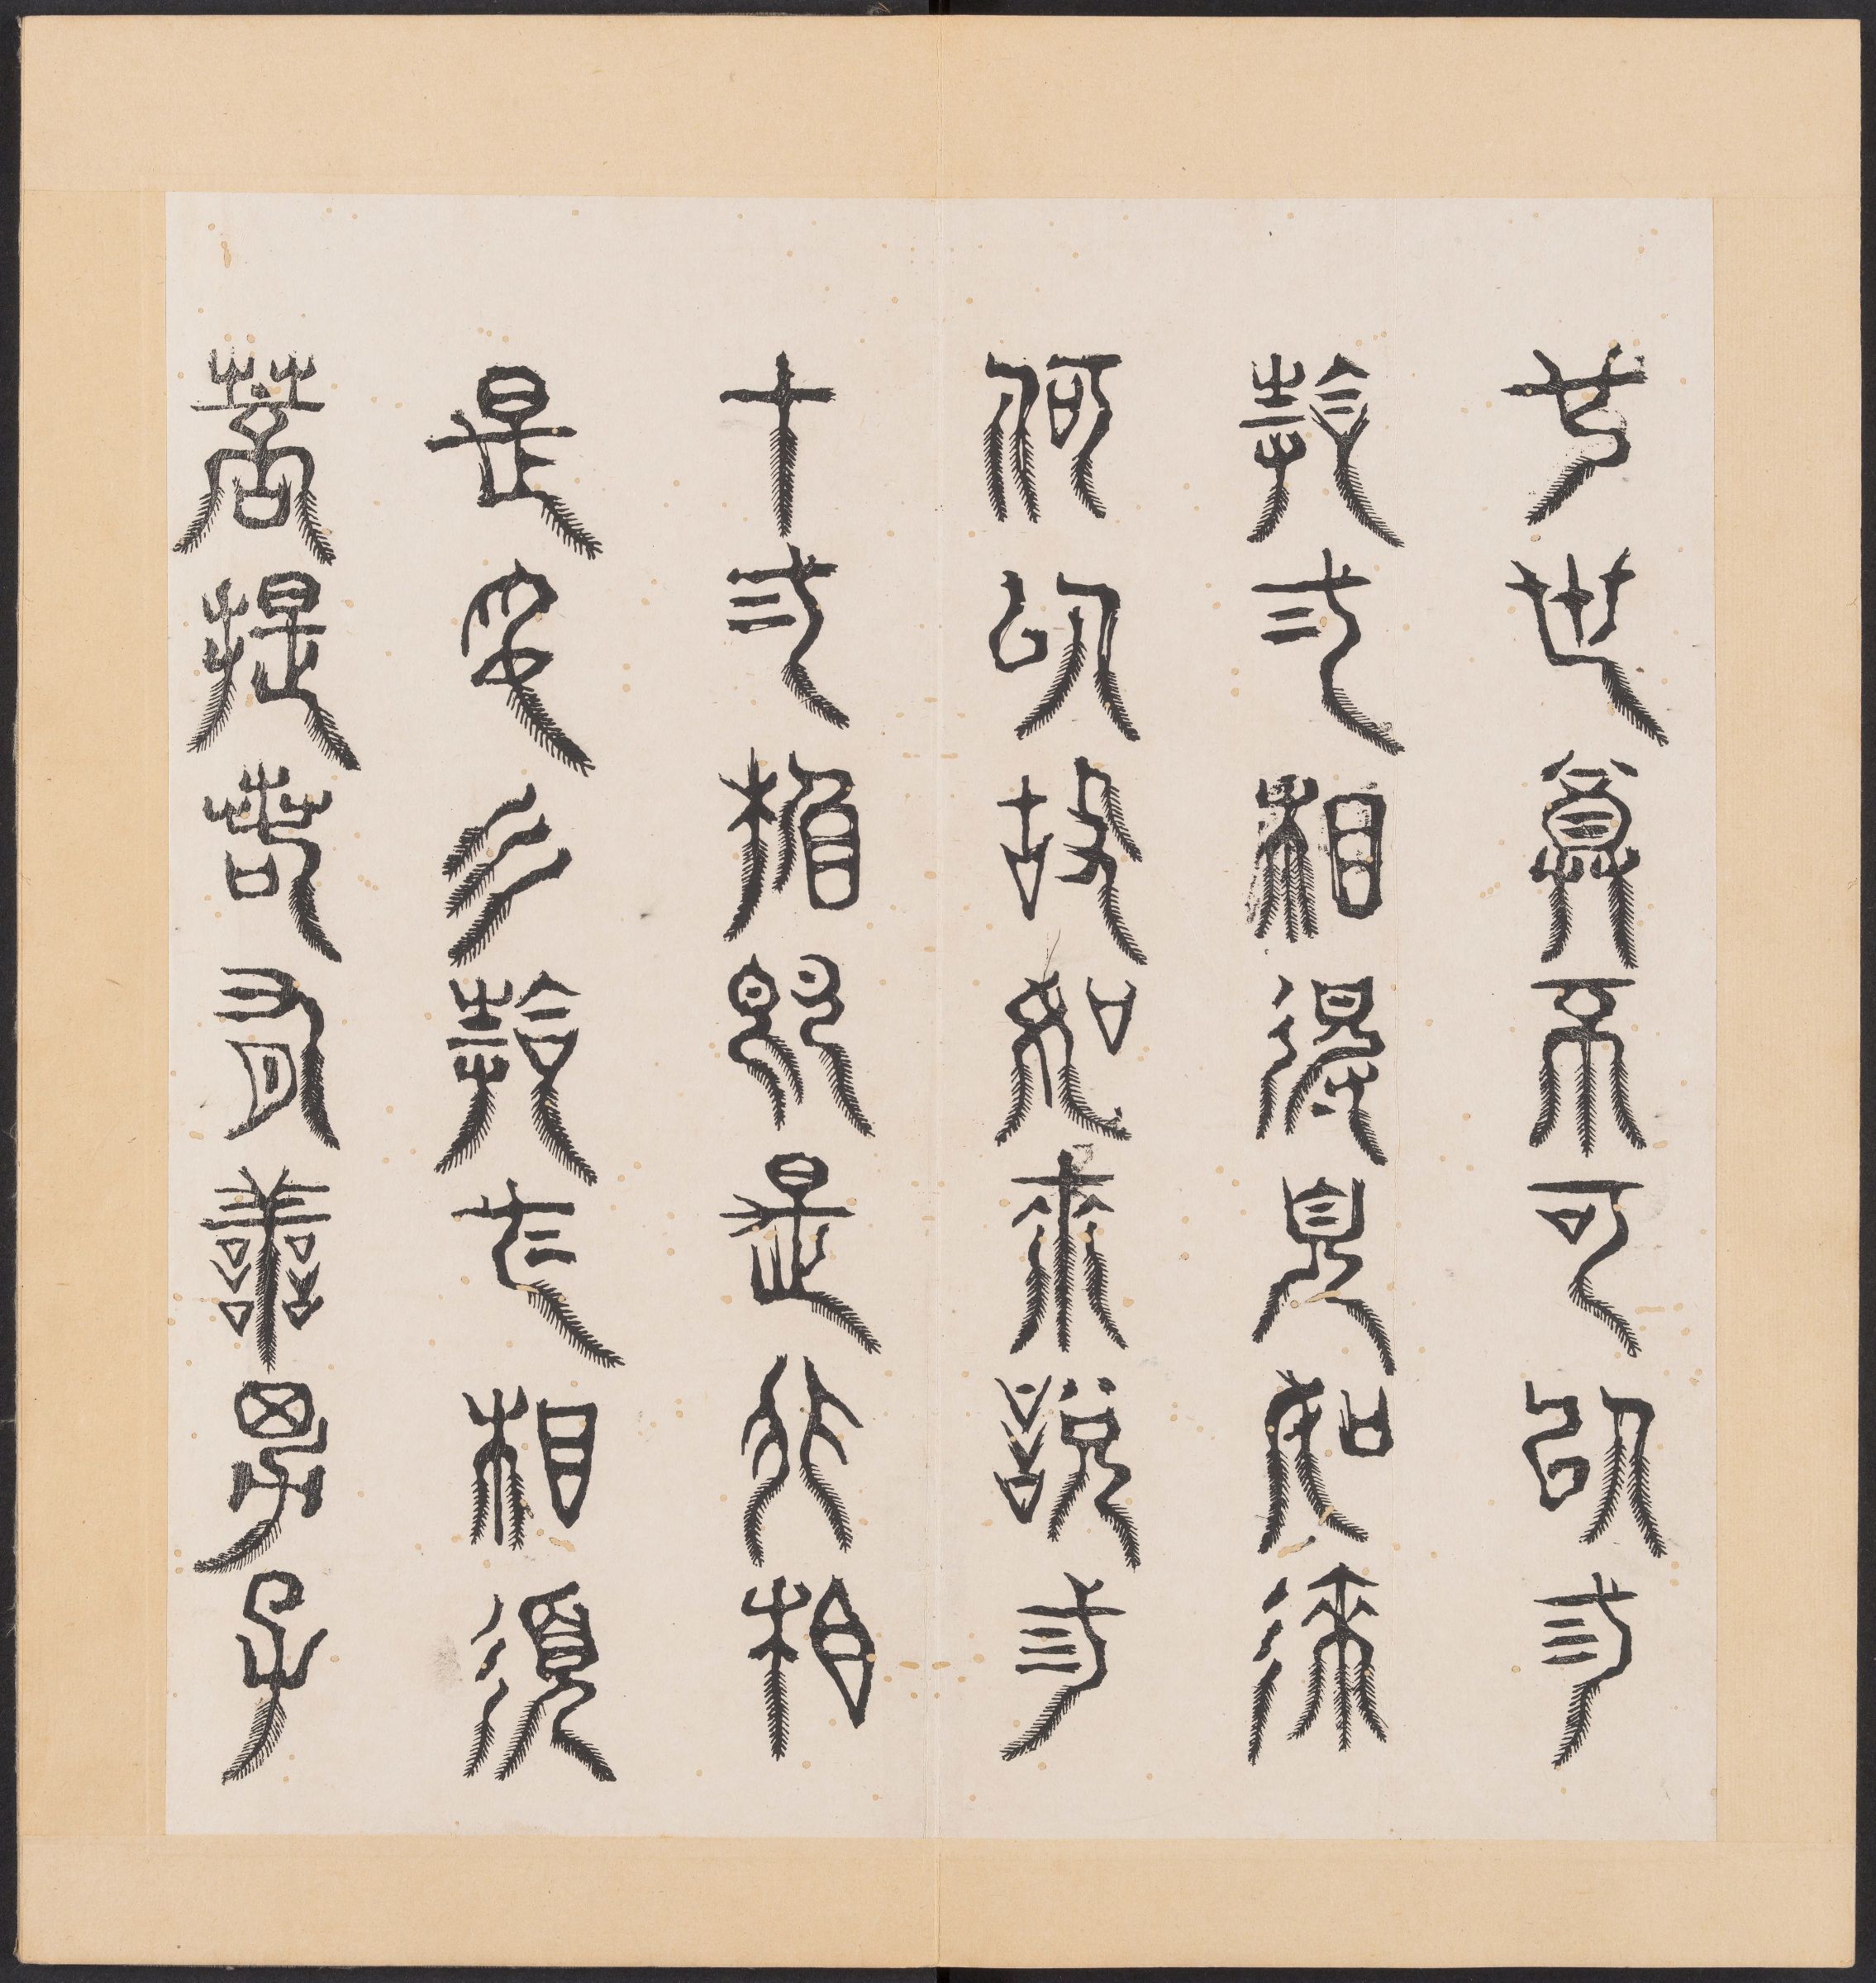 也世尊不可以三
十二相得見如來
何以故如來說三
十二相即是非相
是名三十二相須
菩提若有善男子